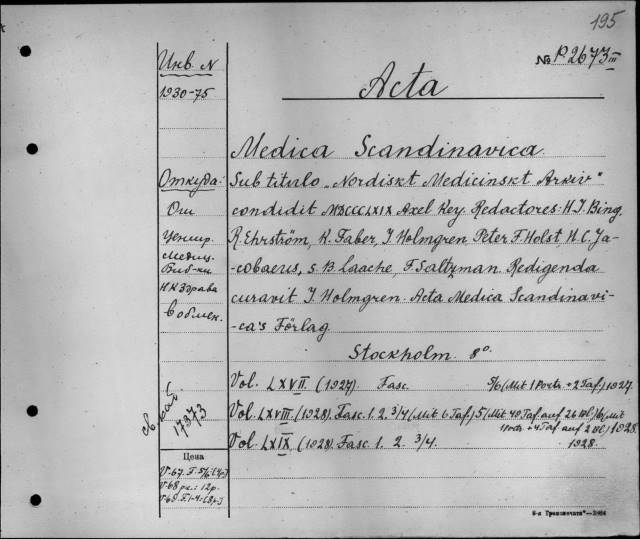 195
№ P2673 III
Инв. N
1930-75
Acta
Medica Scandinavica.
Откуда: Sub titulo „Nordiskt Medicinskt Arkiv“
От condidit MDCCCLXIX Axel Key. Redactores: H.I. Bing,
Центр. R. Ehrström, K. Faber, I Holmgren, Peter F. Holst, H.C. Ja-
Медиц. -cobaeus, S. B. Laache, F Saltzman. Redigenda
Биб-ки curavit I. Holmgren. Acta Medica Scandinavi-
НКЗдрава -ca's Förlag
в обмен.
Stockholm. 8°.
Vol. LXVII (1927) Fasc. 5/6 (Mit 1 Portr. + 2 Taf) 1927.
Vol. LXVIII (1928). Fasc. 1. 2. 3/4 (Mit 6 Taf) 5 (Mit 40 Taf auf 26 Bl)
1 Portr + 4 Taf auf 2 Bl) 1928.
Vol. LXIX (1928) Fasc 1. 2. 3/4. 1928.
17373
Цена
V-67. F-5/6
V-68
V-69. F.1-4